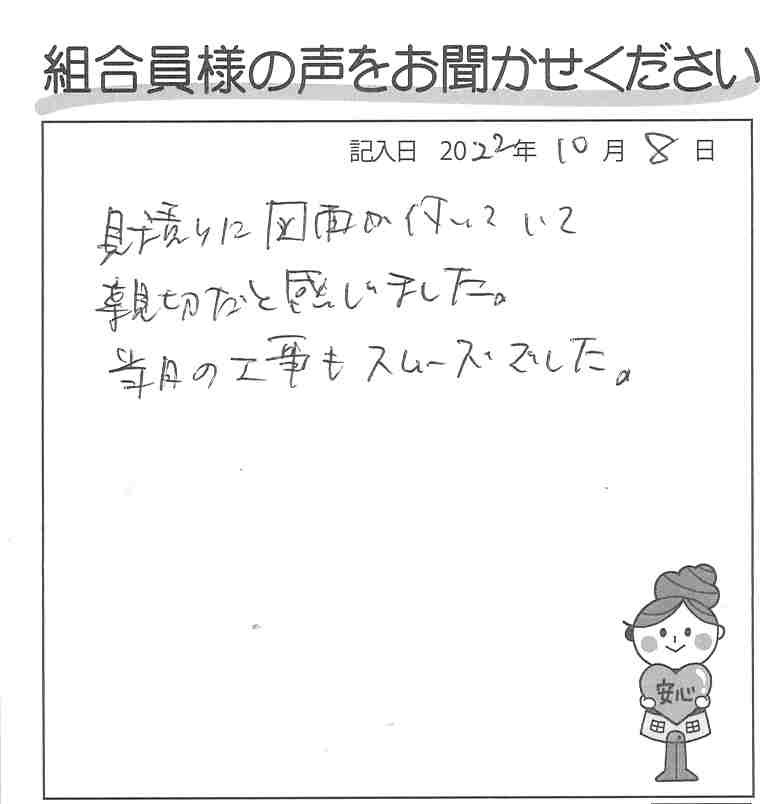 組合員様の声をお聞かせください
記入日 2022年 10月 8日
見積りに図面が付いていて
親切だと感じました。
当日の工事もスムーズでした。
安心